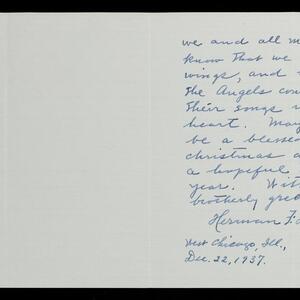 we and all m
know that we
wings, and
the Angels con
Their songs
heart. May
be a blessed
christmas a
a hopeful
year. Wit
brotherly gree
Herman F.
West Chicago, Ill.,
Dec. 22, 1937.